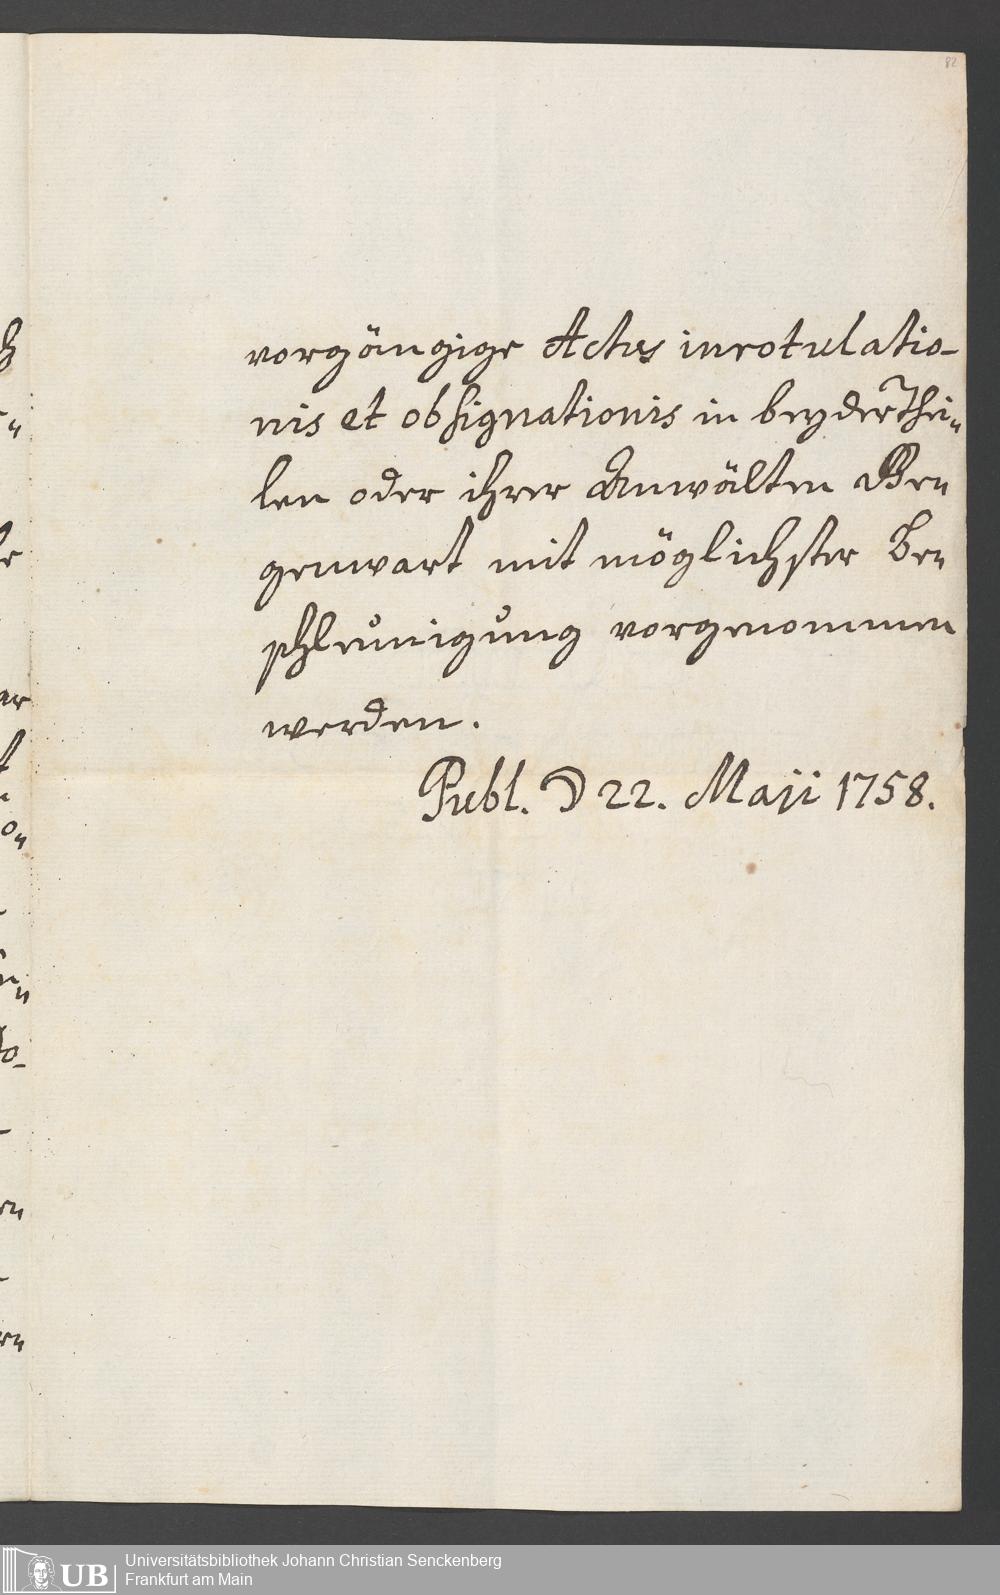 82
vorgängige Actus inrotulatio-
nis et obsignationis in beyder Thei„
len oder ihrer Anwälten Ge„
genwart mit möglichster Be„
schleunigung vorgenommen
werden.
Publ. ☽ 22. Maji 1758.
UB
Universitätsbibliothek Johann Christian Senckenberg
Frankfurt am Main